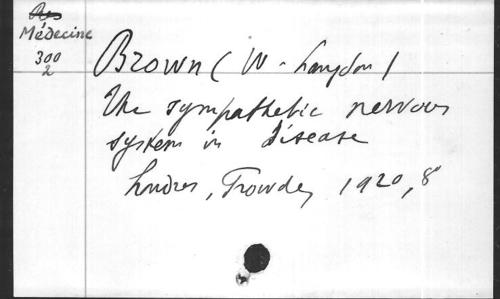 Res
Médecine
300
2
Brown (W. Langdon)
The sympathetic nervous
system in disease
Londres, Frowde, 1920, 8°